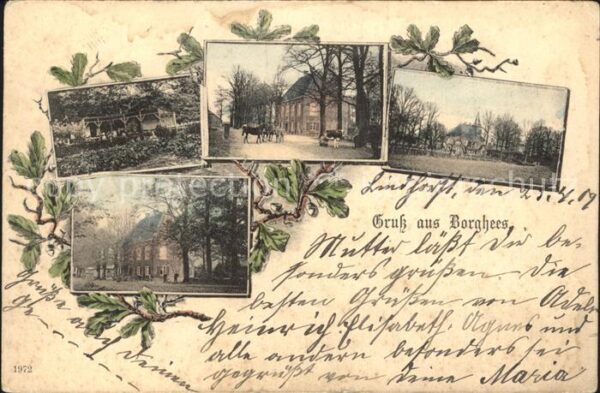 Lindhorst, den 23.4.09
Gruß aus Borghees.
Mutter läßt Dir be-
sonders grüßen. Die
besten Grüßen von Adele
Heinrich. Elisabeth. Agnes und
alle andern besonders sei
gegrüßt von deine Maria
Grüße auch deinen
1972